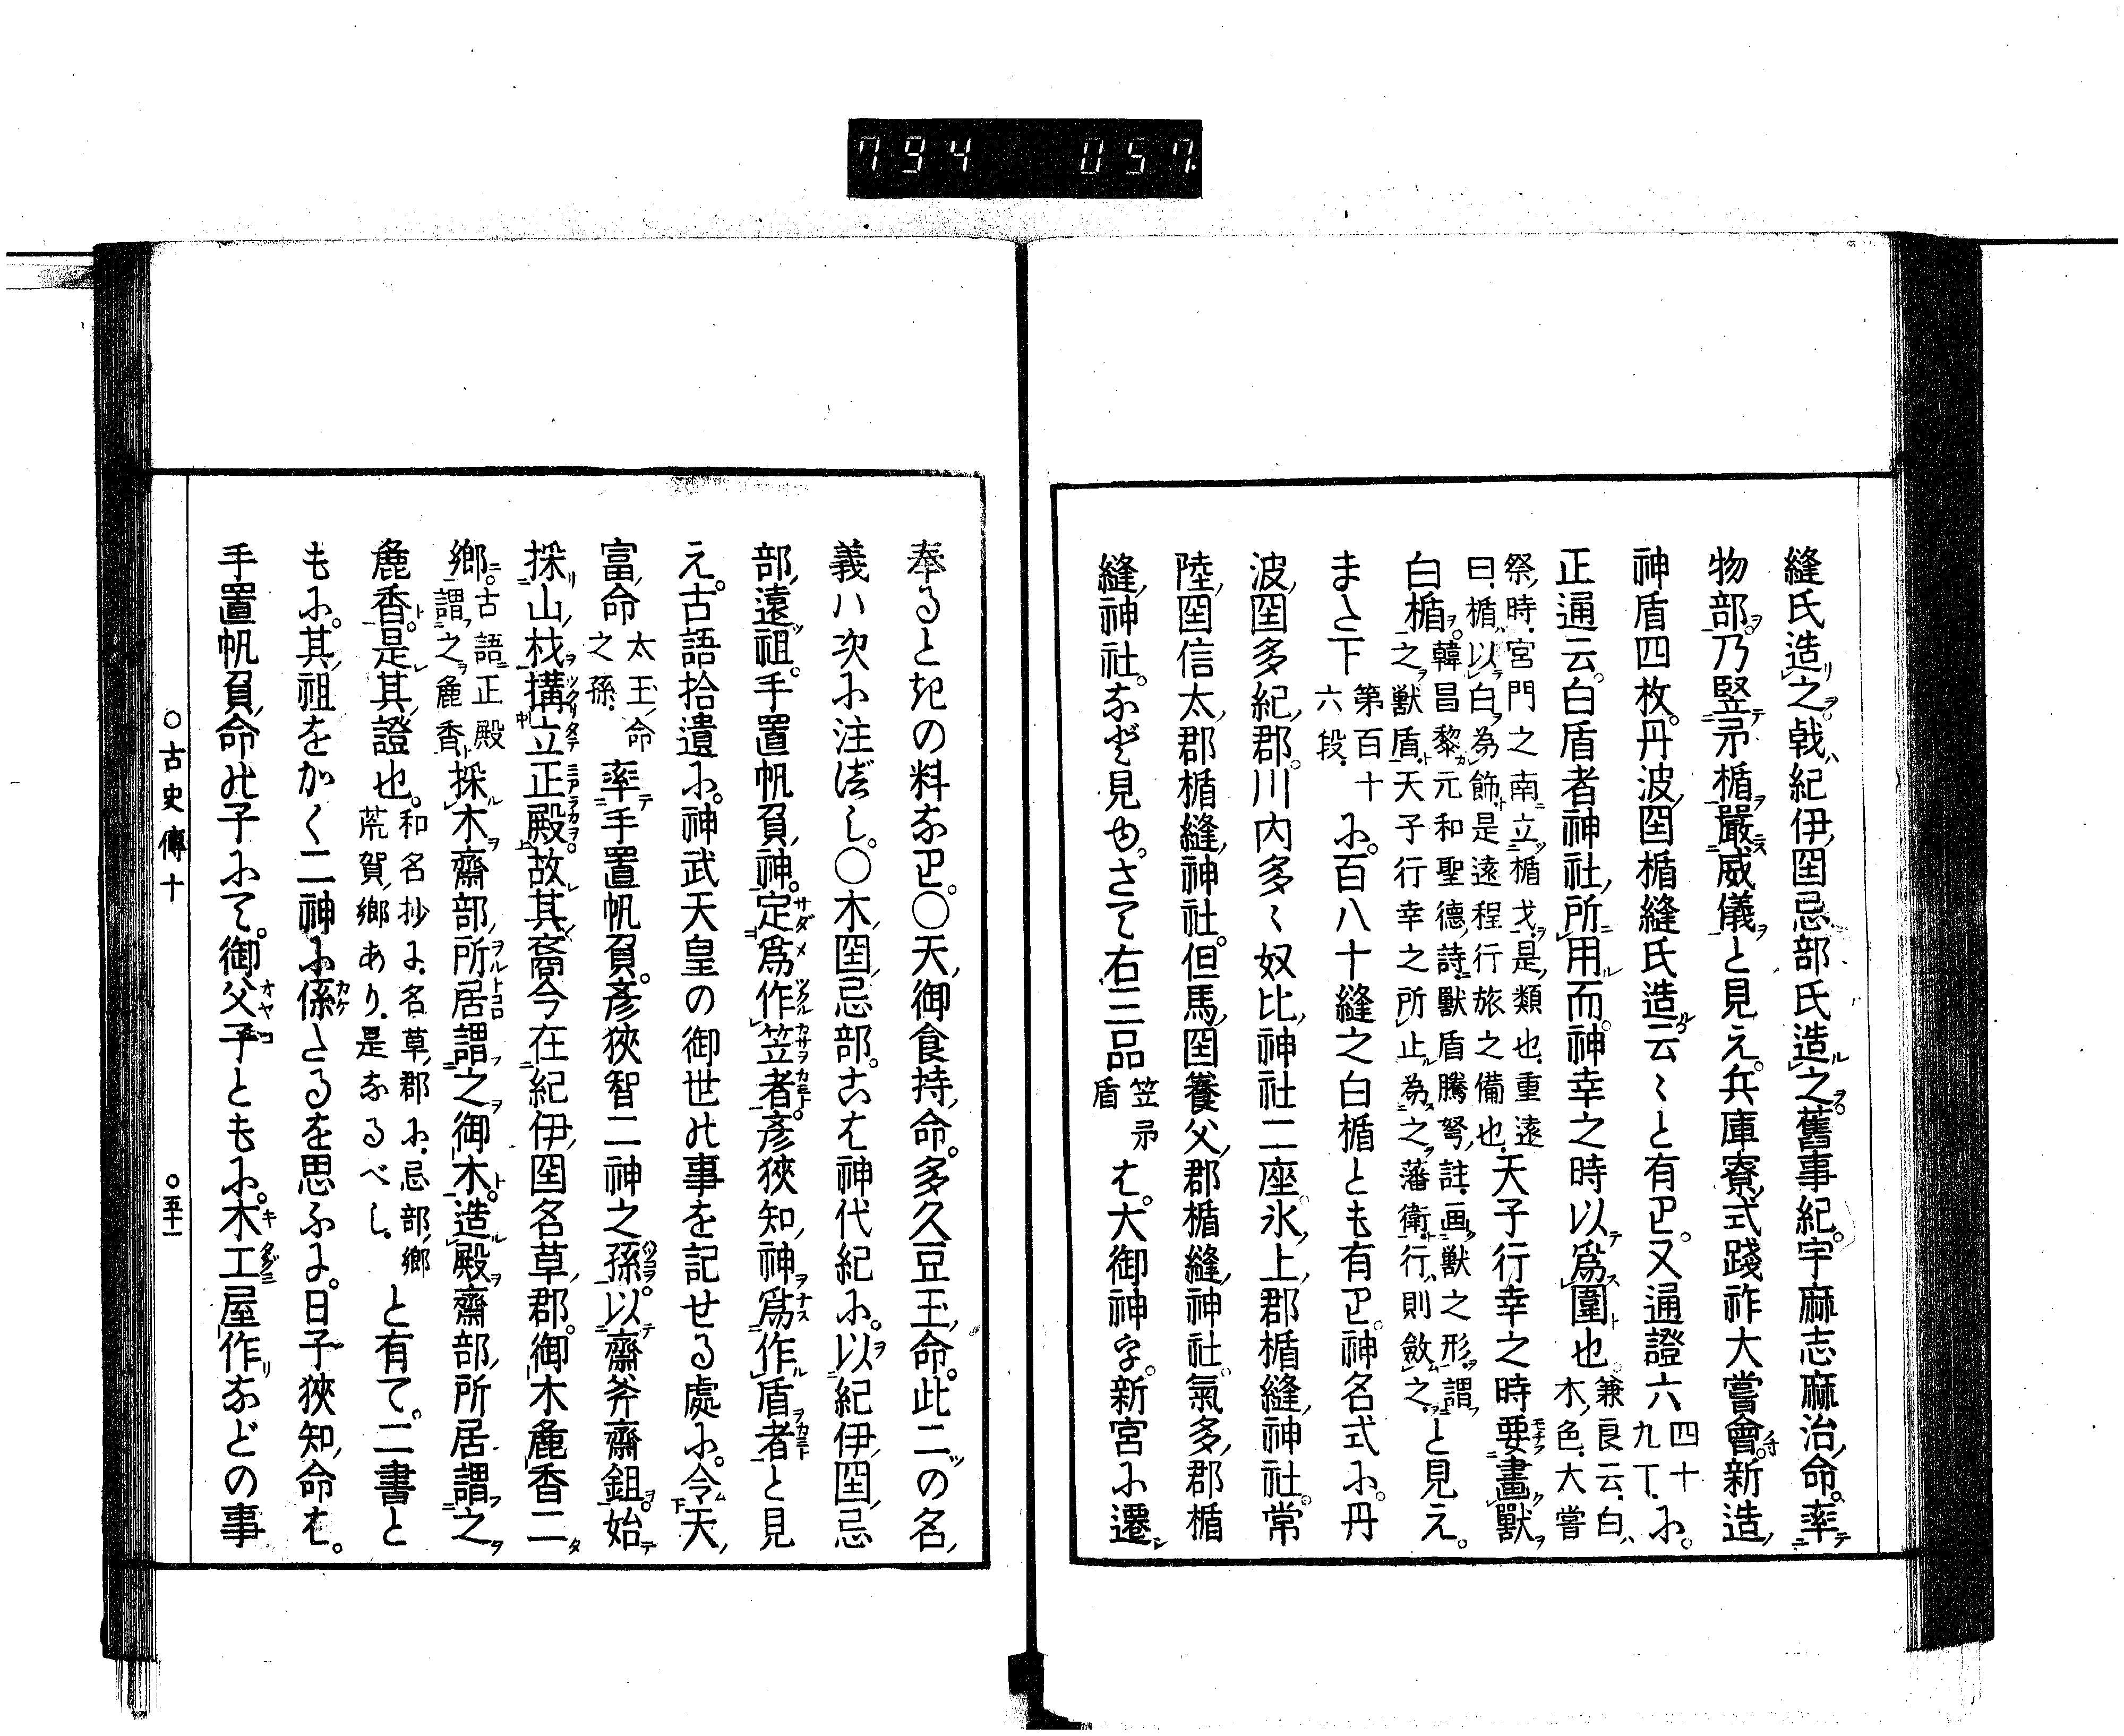 794 057
縫氏造之戟紀伊国忌部氏造之舊事紀。宇麻志麻治命。率
物部。乃竪矛楯。嚴威儀と見え。兵庫寮式踐祚大嘗會。新造
神盾四枚。丹波国楯縫氏造云〻と有り。又通證六四十九丁に。
正通云。白盾者神社所用。而神幸之時以爲圍也。兼良云。白木色。大嘗
祭時。宮門之南立楯戈。是類也。重遠曰。楯以白為飾。是遠程行旅之備也。天子行幸之時要畫獸
白楯。韓昌黎元和聖德詩。獸盾騰弩。註。画獸之形。謂之獸盾。天子行幸之所止為之藩衛。行則斂之。と見え。
また下第百十六段。に。百八十縫之白楯とも有り。神名式に。丹
波国多紀郡。川内多〻奴比神社二座。氷上郡楯縫神社。常
陸国信太郡楯縫神社。但馬国養父郡楯縫神社。氣多郡楯
縫神社。など見ゆ。さて右三品笠矛盾は。大御神を。新宮に遷
奉るときの料なり。〇天御食持命。多久豆玉命。此二ツの名
義ハ次に注べし。〇木国忌部。こは神代紀に。以紀伊国忌
部遠祖。手置帆負神。定爲作笠者。彦狹知神爲作盾者と見
え。古語拾遺に。神武天皇の御世の事を記せる處に。令天
富命太玉命之孫。率手置帆負。彦狹智二神之孫。以齋斧齋鉏。始
採山材。構立正殿。故其裔今在紀伊国名草郡。御木麁香二
鄉。古語正殿謂之麁香。採木齋部所居。謂之御木。造殿齋部所居謂之
麁香。是其證也。和名抄に。名草郡に。忌部鄉荒賀鄉あり。是なるべし。と有て。二書と
もに。其祖をかく二神に係たるを思ふに。日子狹知命は。
手置帆負命の子にて。御父子ともに。木工屋作などの事
〇古史傳十 〇五十一